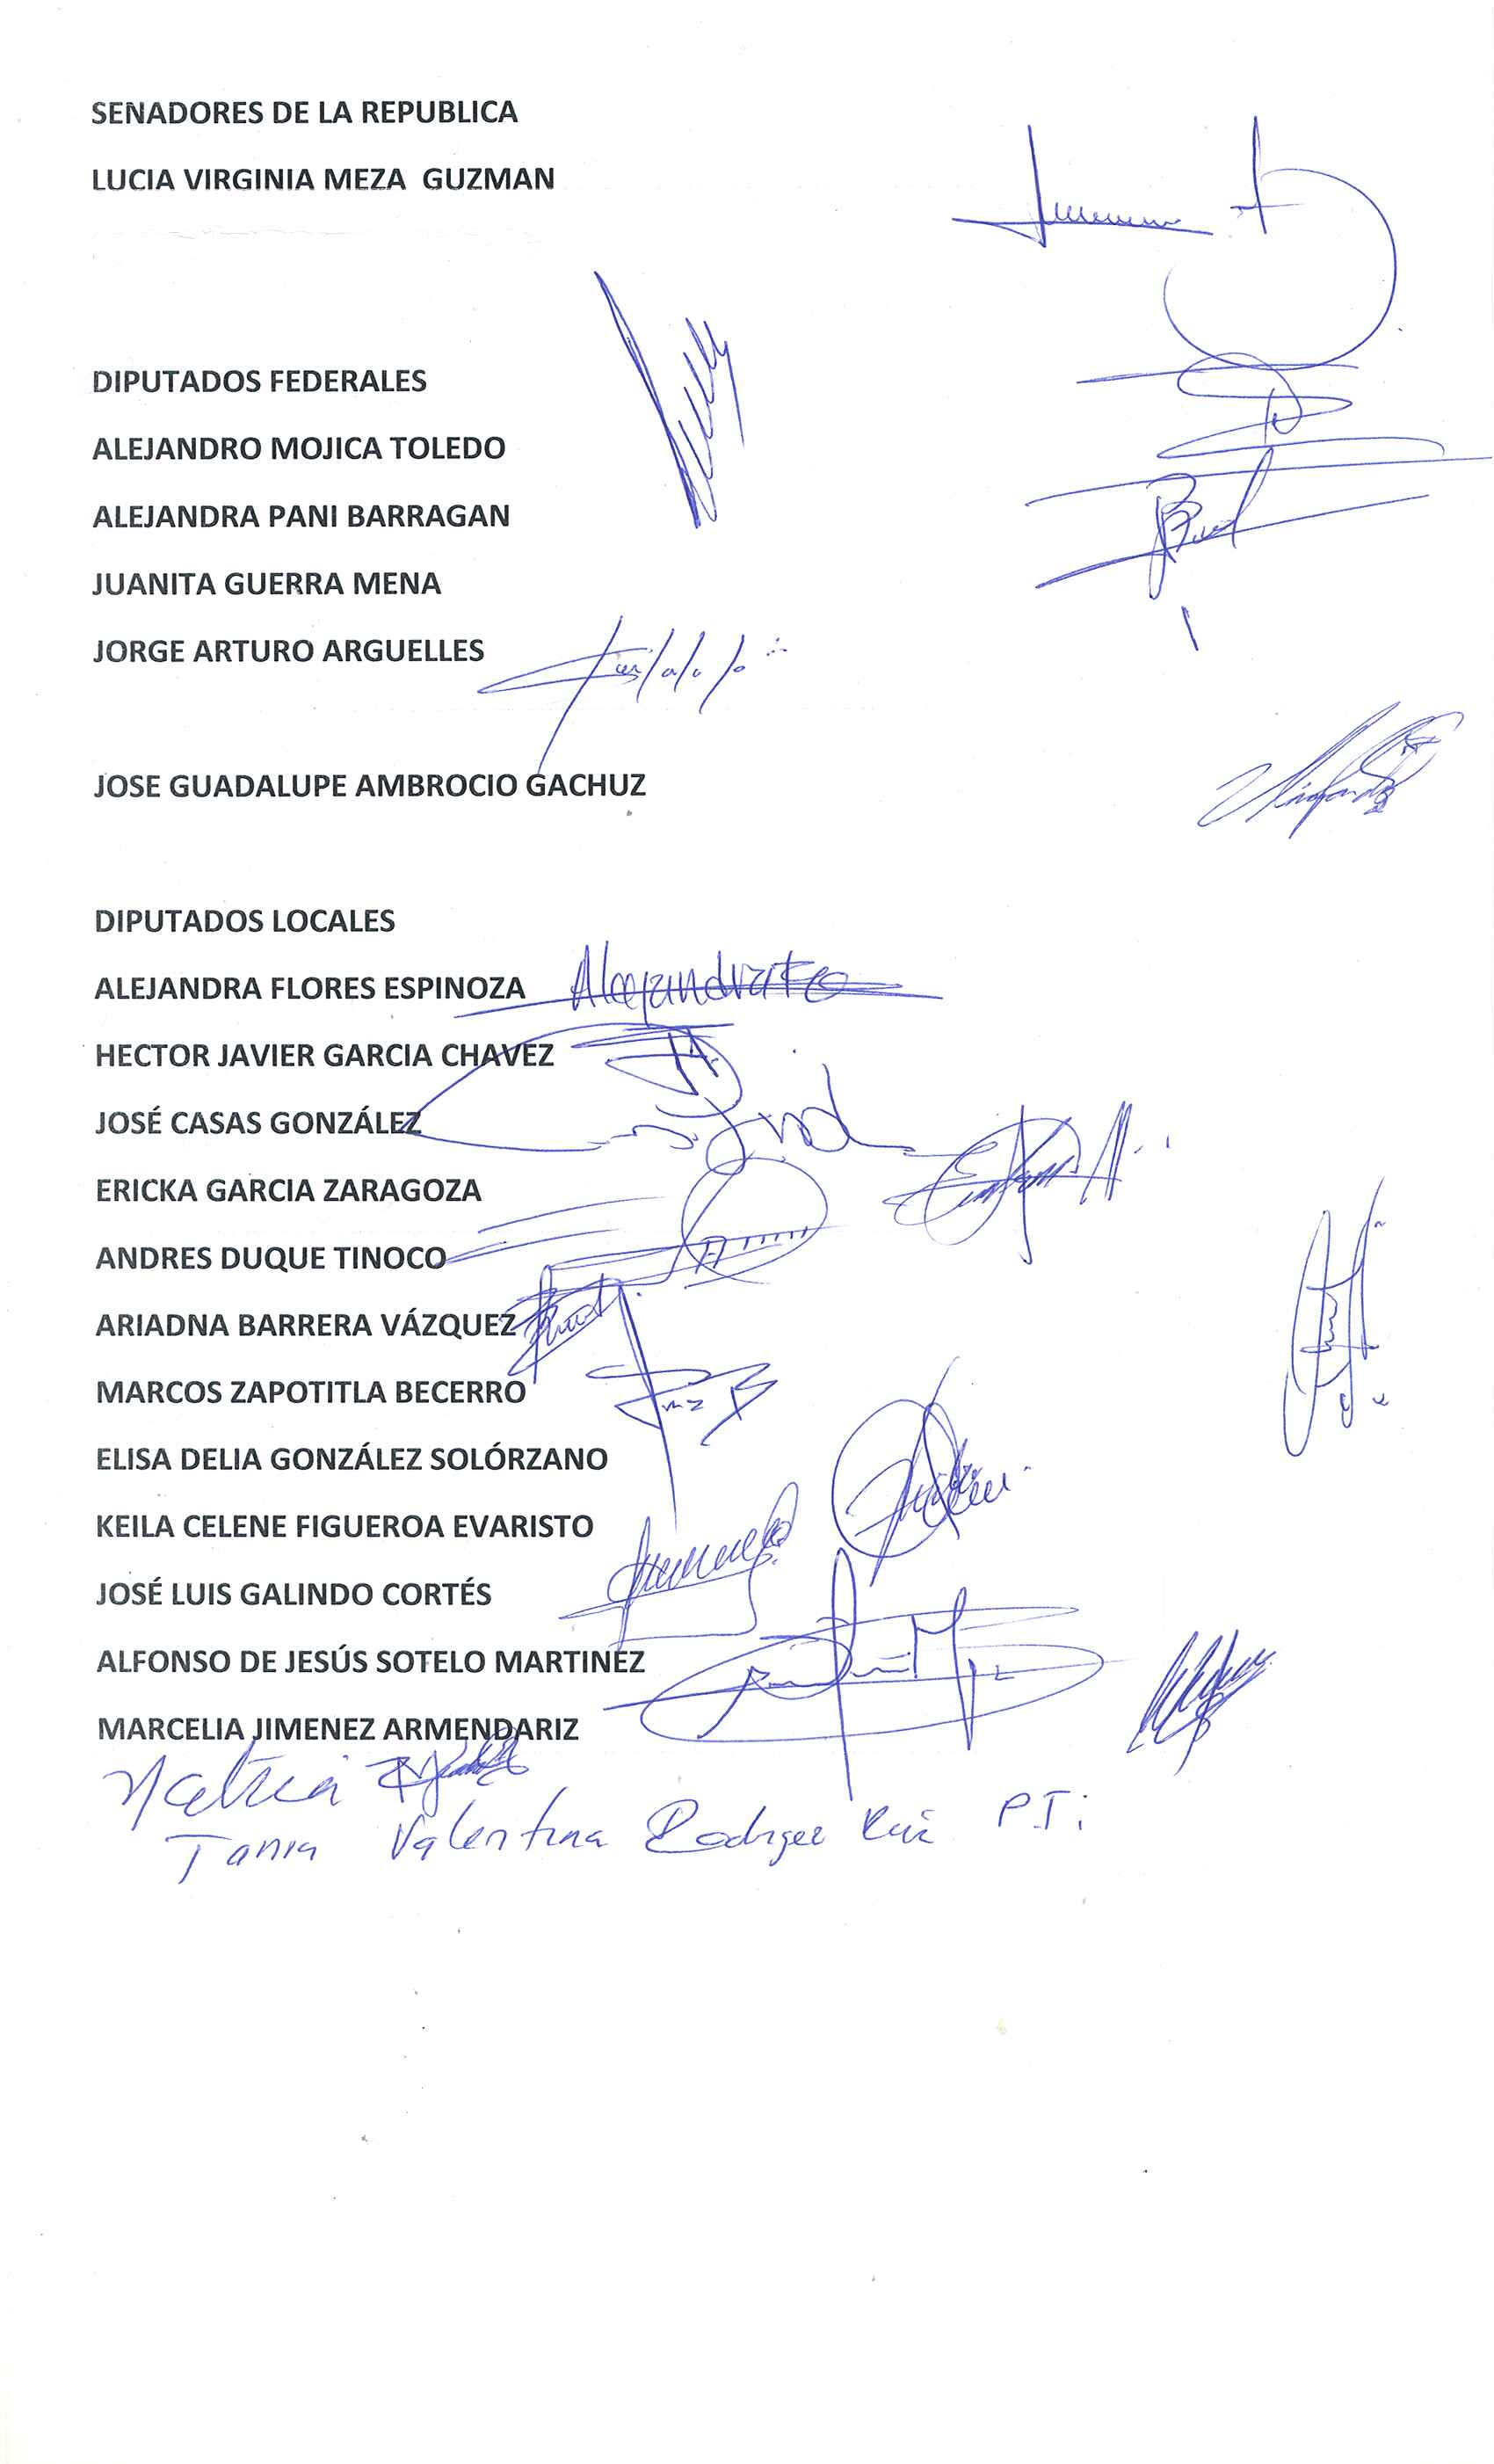 SENADORES DE LA REPUBLICA
LUCIA VIRGINIA MEZA GUZMAN
DIPUTADOS FEDERALES
ALEJANDRO MOJICA TOLEDO
ALEJANDRA PANI BARRAGAN
JUANITA GUERRA MENA
JORGE ARTURO ARGUELLES
JOSE GUADALUPE AMBROCIO GACHUZ
DIPUTADOS LOCALES
ALEJANDRA FLORES ESPINOZA
HECTOR JAVIER GARCIA CHAVEZ
JOSÉ CASAS GONZÁLEZ
ERICKA GARCIA ZARAGOZA
ANDRES DUQUE TINOCO
ARIADNA BARRERA VÁZQUEZ
MARCOS ZAPOTITLA BECERRO
ELISA DELIA GONZÁLEZ SOLÓRZANO
KEILA CELENE FIGUEROA EVARISTO
JOSÉ LUIS GALINDO CORTÉS
ALFONSO DE JESÚS SOTELO MARTINEZ
MARCELIA JIMENEZ ARMENDARIZ
Tania Valentina Rodriguez Ruiz P.T.